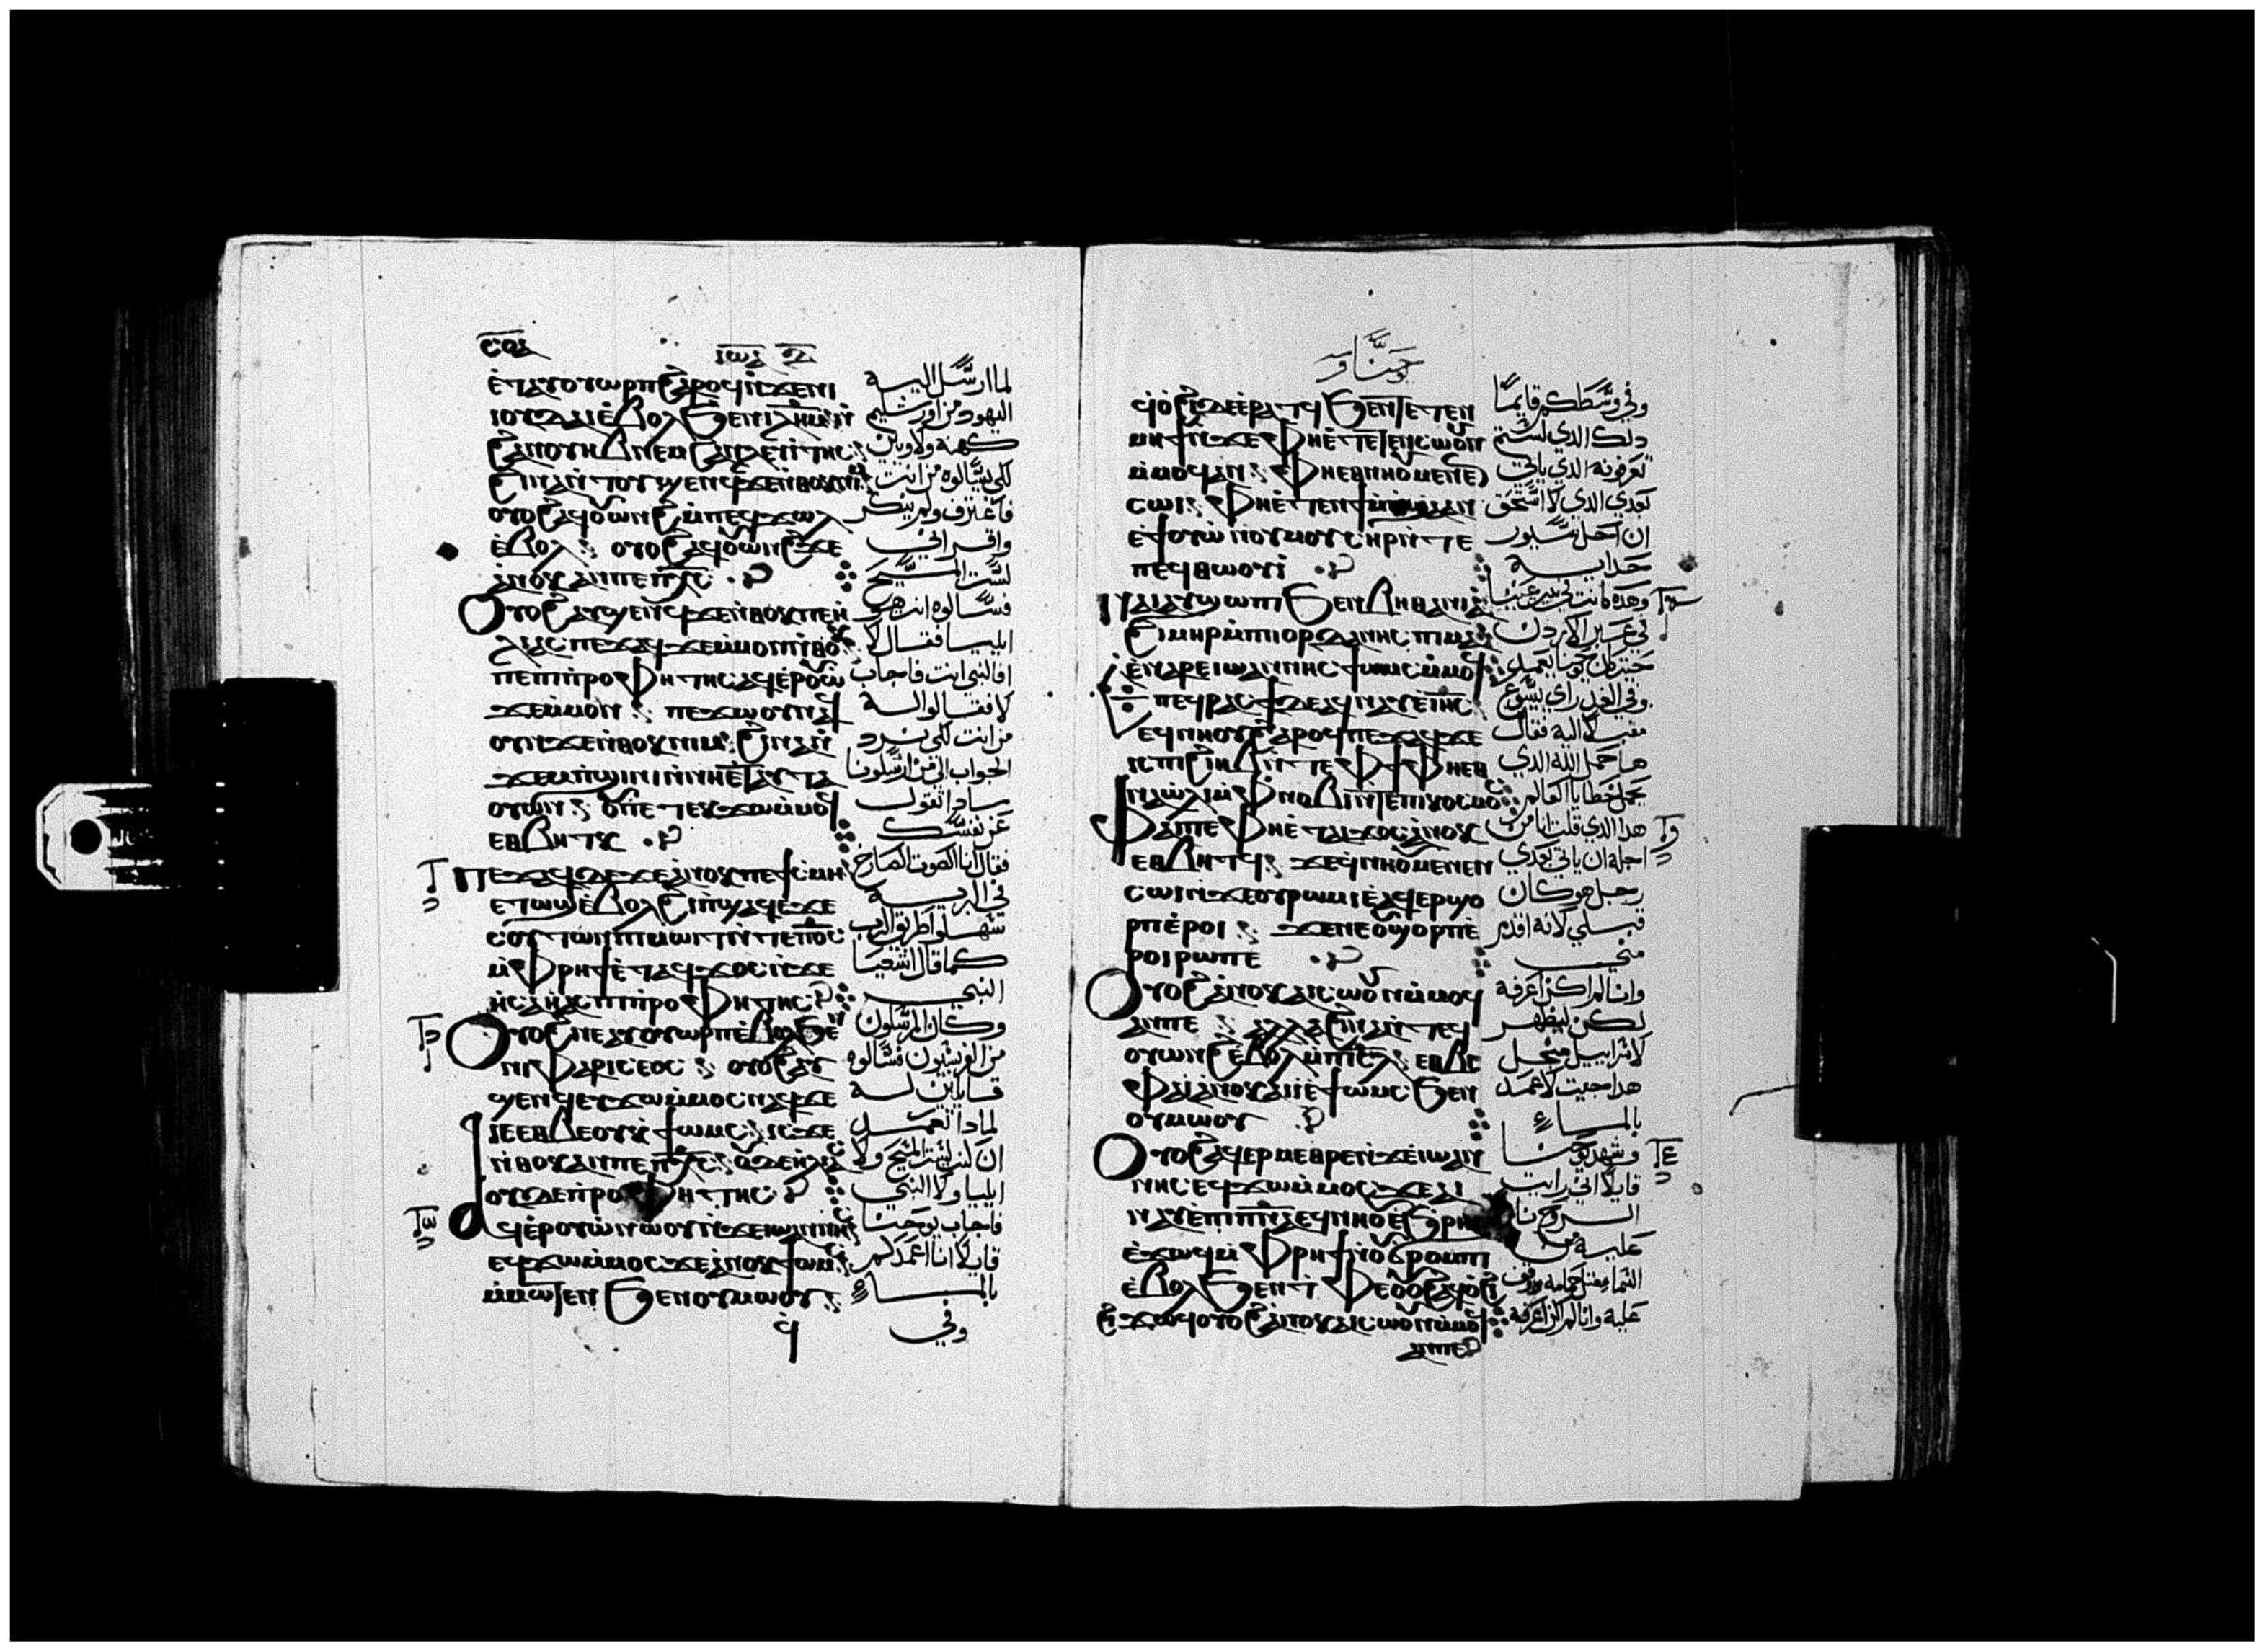 ⲓⲱⲁ
ⲉ̀ⲧⲁⲩⲟⲩⲱⲣⲡ ϩⲁⲣⲟϥ ⲛ̀ϫⲉⲛⲓ
ⲓⲟⲩⲇⲁⲓ ⲉ̀ⲃⲟⲗϧⲉⲛ ⲓⲗ̅ⲏ̅ⲙ̅ ⲛ̀
ϩⲁⲛⲟⲩⲏⲃ ⲛⲉⲙ ϩⲁⲛⲗⲉⲩⲓⲧⲏⲥ
ϩⲓⲛⲁ ⲛ̀ⲧⲟⲩϣⲉⲛϥ ϫⲉ ⲛ̀ⲑⲟⲕ ⲛⲓⲙ
ⲟⲩⲟϩ ⲁϥⲟⲩⲱⲛϩ ⲙ̀ⲡⲉϥϫⲱⲗ
ⲉ̀ⲃⲟⲗ ⲟⲩⲟϩ ⲁϥⲟⲩⲱⲛϩ ϫⲉ
ⲁ̀ⲛⲟⲕ ⲁⲛ ⲡⲉ ⲡⲭ̅ⲥ̅
ⲟⲩⲟϩ ⲁⲩϣⲉⲛϥ ϫⲉ ⲛ̀ⲑⲟⲕ ⲡⲉ ⲏ
ⲗⲓⲁⲥ ⲡⲉϫⲁϥ ϫⲉ ⲙ̀ⲙⲟⲛ ⲛ̀ⲑⲟⲕ
ⲡⲉ ⲡⲓⲡⲣⲟⲫⲏⲧⲏⲥ ⲁϥⲉ̀ⲣⲟⲩⲱ
ϫⲉ ⲙ̀ⲙⲟⲛ ⲡⲉϫⲱⲟⲩ ⲛⲁϥ
ⲟⲩⲛ ϫⲉ ⲛ̀ⲑⲟⲕ ⲛⲓⲙ ϩⲓⲛⲁ ⲛ̀
ⲟⲩⲱⲛ ⲟⲩ ⲡⲉⲧⲉⲕϫⲱ ⲙ̀ⲙⲟϥ
ⲉⲑⲃⲏⲧⲕ
ⲡⲉϫⲁϥ ⲇⲉ ϫⲉ ⲁ̀ⲛⲟⲕ ⲡⲉ ϯⲥⲙⲏ
ⲉⲧⲱϣ ⲉ̀ⲃⲟⲗ ϩⲓ ⲡϣⲁϥⲉ ϫⲉ
ⲥⲟⲩⲧⲱⲛ ⲡⲓⲙⲱⲓⲧ ⲛ̀ⲧⲉ ⲡⲟ̅ⲥ̅
ⲙ̀ⲫⲣⲏϯ ⲉ̀ⲧⲁϥϫⲟⲥ ⲛ̀ϫⲉ
ⲏ̀ⲥⲁⲏ̀ⲁⲥ ⲡⲓⲡⲣⲟⲫⲏⲧⲏⲥ
ⲟⲩⲟϩ ⲛⲉ ⲁⲩⲟⲩⲱⲣⲡ ⲉ̀ⲃⲟⲗϧⲉⲛ
ⲛⲓⲫⲁⲣⲓⲥⲉⲟⲥ ⲟⲩⲟϩ ⲁⲩ
ϣⲉⲛϥ ⲉⲩϫⲱ ⲙ̀ⲙⲟⲥ ⲛⲁϥ ϫⲉ
ⲓⲉ ⲉⲑⲃⲉⲟⲩ ⲕϯⲱⲙⲥ ⲓⲥϫⲉ
ⲛ̀ⲑⲟⲕ ⲁⲛ ⲡⲉ ⲡⲭ̅ⲥ̅ ⲟⲩⲇⲉ ⲏⲗⲓⲁⲥ
ⲟⲩⲇⲉ ⲡⲣⲟⲫⲏⲧⲏⲥ
ⲁϥⲉ̀ⲣⲟⲩⲱ̀ ⲛⲱⲟⲩ ⲛ̀ϫⲉ ⲓⲱⲁⲛⲛⲏⲥ
ⲉϥϫⲱ ⲙ̀ⲙⲟⲥ ϫⲉ ⲁ̀ⲛⲟⲕ ϯⲱⲙⲥ
ⲙ̀ⲙⲱⲧⲉⲛ ϧⲉⲛ ⲟⲩⲙⲱⲟⲩ
ϥ̀
لما ارسل اليه
اليهود من اورشليم
كهنة ولاويين
لكي يسالوه من انت
فاعترف ولم ينكر
واقر اني
لست المسيح
فسالوه انت هو
ايليا فقال لا
افالنبي انت فاجاب
لا فقالوا له
من انت لكي نرد
الجواب الي من ارسلونا
ماذا تقول
عن نفسك
فقال انا الصوت الصارخ
في البريه
سهلوا طريق الرب
كما قال اشعيا
النبي
وكان المرسلون
من الفريسيون فسالوه
قايلين له
لماذا تعمد
ان كنت لست المسيح ولا
ايليا ولا النبي
فاجاب يوحنا
قايلا انا اعمدكم
بالماء
وفي
يوحنا
ϥ̀ⲟ̀ϩⲓ ⲇⲉ ⲉ̀ⲣⲁⲧϥ ϧⲉⲛ ⲧⲉⲧⲉⲛ
ⲙⲏϯ ⲛ̀ϫⲉ ⲫⲏ ⲉ̀ⲧⲉⲧⲉⲛⲥⲱⲟⲩⲛ
ⲙ̀ⲙⲟϥ ⲁⲛ ⲫⲏ ⲉⲑⲛⲏⲟⲩ ⲙⲉⲛⲉⲛ
ⲥⲱⲓ ⲫⲏ ⲉ̀ⲧⲉⲛϯⲙ̀ⲡϣⲁ ⲁⲛ
ⲉ̀ϯⲟⲩⲱ ⲛ̀ⲟⲩⲙⲟⲩⲥⲏⲣ ⲛ̀ⲧⲉ
ⲡⲉϥⲑⲱⲟⲩⲓ̀
ⲛⲁⲓ ⲁⲩϣⲱⲡⲓ ϧⲉⲛ ⲃⲏⲑⲁⲛⲓⲁ
ϩⲓⲙⲏⲣ ⲙ̀ⲡⲓⲓⲟⲣⲇⲁⲛⲏⲥ ⲡⲓⲙⲁ
ⲉ̀ⲛⲁⲣⲉ ⲓⲱⲁⲛⲛⲏⲥ ϯⲱⲙⲥ ⲙ̀ⲙⲟϥ
ⲡⲉϥⲣⲁⲥϯ ⲇⲉ ⲁϥⲛⲁⲩ ⲉ̀ⲓⲏ̅ⲥ̅
ⲉϥⲛⲏⲟⲩ ϩⲁⲣⲟϥ ⲡⲉϫⲁϥ ϫⲉ
ⲓⲥ ⲡⲓϩⲓⲏⲃ ⲛ̀ⲧⲉ ⲫϯ ⲫⲏ ⲉⲑ
ⲛⲁⲱ̀ⲗⲓ ⲙ̀ⲫⲛⲟⲃⲓ ⲛ̀ⲧⲉ ⲡⲓⲕⲟⲥⲙⲟⲥ
ⲫⲁⲓ ⲡⲉ ⲫⲏ ⲉ̀ⲧⲁⲓϫⲟⲥ ⲁ̀ⲛⲟⲕ
ⲉⲑⲃⲏⲧϥ ϫⲉ ϥ̀ⲛⲏⲟⲩ ⲙⲉⲛⲉⲛ
ⲥⲱⲓ ⲛ̀ϫⲉ ⲟⲩⲣⲱⲙⲓ ⲉ̀ⲁϥⲉⲣϣⲟ
ⲣⲡ ⲉ̀ⲣⲟⲓ ϫⲉ ⲛⲉ ⲟⲩϣⲟⲣⲡ ⲉ̀
ⲣⲟⲓ ⲣⲱ ⲡⲉ
ⲟⲩⲟϩ ⲁ̀ⲛⲟⲕ ⲛⲁⲓⲥⲱⲟⲩⲛ ⲙ̀ⲙⲟϥ
ⲁⲛ ⲡⲉ ⲁⲗⲗⲁ ϩⲓⲛⲁ ⲛ̀ⲧⲉϥ
ⲟⲩⲱⲛϩ ⲉ̀ⲃⲟⲗ ⲙ̀ⲡⲓⲥ̅ⲗ̅ ⲉⲑⲃⲉ
ⲫⲁⲓ ⲁ̀ⲛⲟⲕ ⲁⲓⲓ̀ ⲉ̀ϯⲱⲙⲥ ϧⲉⲛ
ⲟⲩⲙⲱⲟⲩ
ⲟⲩⲟϩ ⲁϥⲉⲣⲙⲉⲑⲣⲉ ⲛ̀ϫⲉ ⲓⲱⲁⲛ
ⲛⲏⲥ ⲉϥϫⲱ ⲙ̀ⲙⲟⲥ ϫⲉ ⲁⲓ
ⲛⲁⲩ ⲉ̀ⲡⲓⲡ̅ⲛ̅ⲁ̅ ⲉϥⲛⲏⲟⲩ ⲉ̀ϧⲣⲏⲓ
ⲉ̀ϫⲱϥ ⲙ̀ⲫⲣⲏϯ ⲛ̀ⲟⲩϭⲣⲟⲙⲡⲓ
ⲉ̀ⲃⲟⲗϧⲉⲛ ⲧⲫⲉ ⲟⲩⲟϩ ⲁϥⲟ̀ϩⲓ
ϩⲓϫⲱϥ ⲟⲩⲟϩ ⲁ̀ⲛⲟⲕ ⲛⲁⲓⲥⲱⲟⲩⲛ ⲙ̀ⲙⲟϥ
ⲁⲛ ⲡⲉ
وفي وسطكم قايما
ذلك الذي لستم
تعرفونه الذي ياتي
بعدي الذي لا استحق
ان احل سيور
حذايه
وهذه كانت في بيت عنيا
في عبر الاردن
حيث كان يوحنا يعمد
وفي الغد راي يسوع
مقبلا اليه فقال
ها حمل الله الذي
يحمل خطايا العالم
هذا الذي قلت انا من
اجله ان ياتي بعدي
رجل هو كان
قبلي لانه اقدم
مني
وانا لم اكن اعرفه
لكن ليظهر
لاسراييل من اجل
هذا جيت لاعمد
بالماء
وشهد يوحنا
قايلا اني رايت
الروح نازلا
عليه من
السماء مثل حمامه ووقف
عليه وانا لم اكن اعرفه